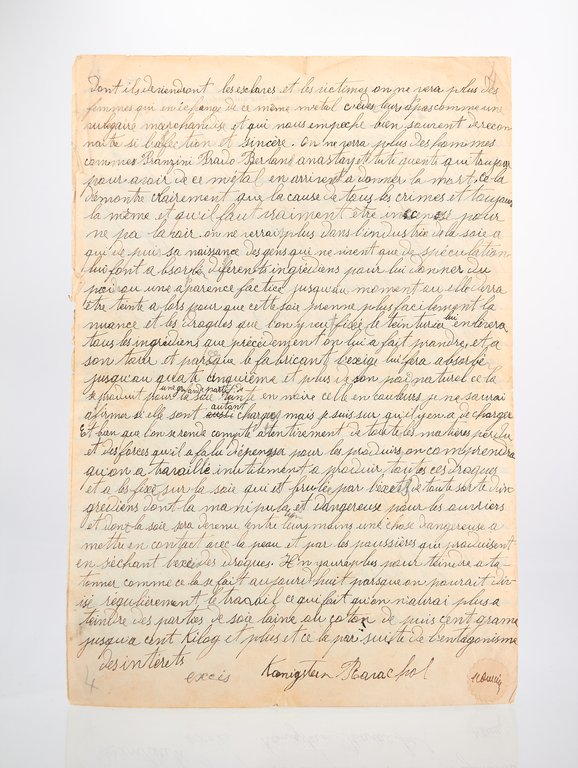 dont ils deviendront les esclaves et les victimes on ne vera plus des
femmes qui en échange de ce même métal cèdes leurs apas comme une
vulgaire marchandise et qui nous empeche bien souvent de recon
naitre si l'afection et sincère. on ne verra plus des hommes
commes Pranzini Prado Berland anastay et tuti quanti qui toujour
pour avoir de ce métal en arrivent a donner la mort, ce la
démontre clairement que la cause de tous les crimes et toujours
la même et qu'il faut vraiment être insensé pour
ne pa la voir. on ne verrais plus dans l'industrie de la soie a
qui depuis sa naissance des gens qui ne vivent que de spéculation
lui font a bsorbé diférents ingrédiens pour lui donner du
poi ou une aparence factice jusqu'au moment ou elle ira
être teinte a lors pour que cette soie prenne plus facilement la
nuance et les drogues que l'on y veut fixée le teinturié lui enlevera
tous les ingrédiens que précédement on lui a fait prandre, et a
son tour et par su le fabricant l'exigé lui fera absorbé
jusqu'au quatre cinquième et plus de son poid naturel ce la
se produit pour une grande partie de la soie teinte en noire celle en couleurs je ne saurai
afirmer si elle sont aussi autant chargées mais je suis sur qu'il y en a de charger
Et bien que l'on se rende compte atentivement de toute les matières perdu
et des forces qu'il a falu dépenser pour les produire, on comprendra
qu'on a travaillé inutilement a produir toutes ces drogues
et a les fixé sur la soie qui est brulée par l'excès de toute sorte d'in
grédiens dont la manipulation et dangereuse pour les ouvriers
et dont la soie sera devenu entre leurs mains une chose dangereuse a
mettre en contact avec la peau et par les poussières que produisent
en séchant l'excé des drogues. Il n'y aura plus pour teindre a ta-
tonner comme ce la se fait aujourd'huit parsque on pourait di-
visé régulièrement le travail ce qui fait qu'on n'aurai plus a
teindre des parties de soie laine ou coton de puis cent grame
jusqu'a cent Kilog et plus et ce la par suite de l'entagonisme
des interets
4 excis Kœnigstein Ravachol